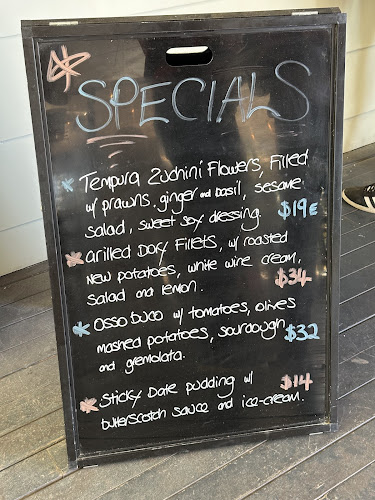 SPECIALS
Tempura Zuchini Flowers, Filled
w/ prawns, ginger and basil, sesame
salad, sweet soy dressing. $19 E
Grilled Dory Fillets, w/ roasted
new potatoes, white wine cream,
salad and lemon. $34
Osso Buco w/ tomatoes, olives
mashed potatoes, sourdough $32
and gremolata.
Sticky Date pudding w/ $14
butterscotch sauce and ice-cream.